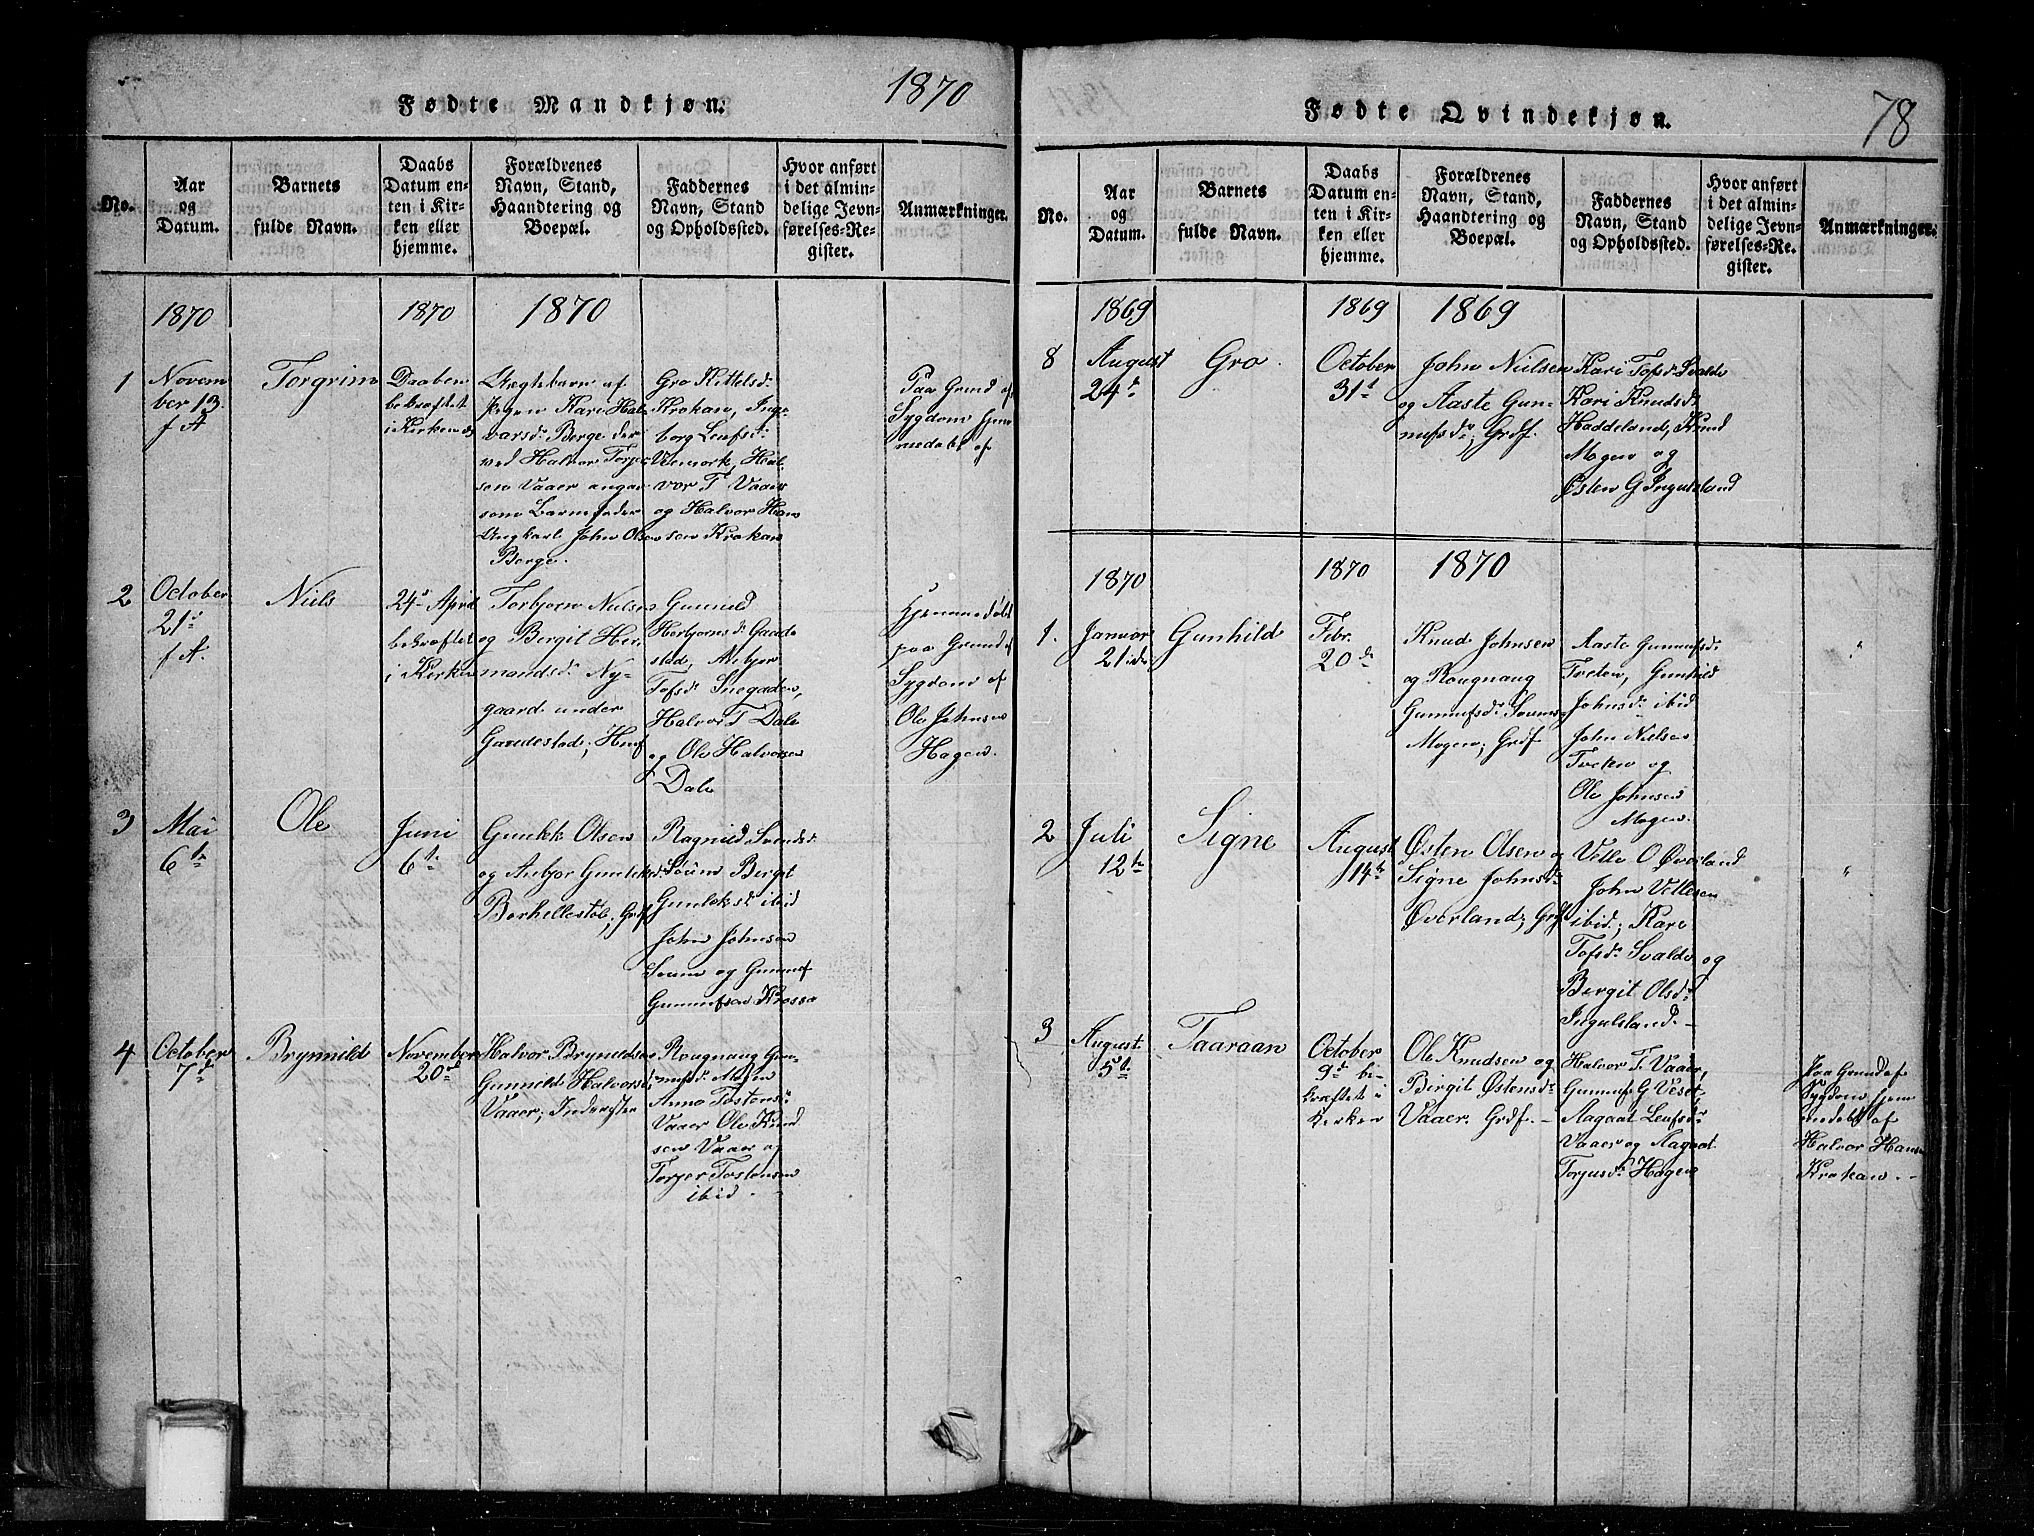 1870
Fødte Mandkjøn.
No.
Aar
og
Datum.
Barnets
fulde Navn.
Daabs
Datum en-
ten i Kir-
ken eller
hjemme.
Forældrenes
Navn, Stand,
Haandtering og
Boepæl.
Faddernes
Navn, Stand
og Opholdssted.
Hvor anført
i det almin-
delige Jevn-
førelses-Re-
gister.
Anmærkninger.
1870
1870
1870
1
Novem
ber 13.
f A
Torgrim
Daaben
bekræftet
i Kirken
Uægtebarn af
Pigen Kari Hal
varsd. Berge der
ved Halvor Torje
sen Vaaer angav
som Barnefader
Ungkarl John Olsen
Berge.
Gro Kittelsd.
Krokan, Inge
borg Leufsd.
Vemork, Hal
vor T Vaaer
og Halvor Han
sen Krokan
Paa Grund af
Sygdom hjem
medøbt af
2
October
21.
f A.
Niels
24d April
bekræftet
i Kirken
Torbjørn Nielsen
og Bergit Her
mandsd. Ny-
gaard under
Gardestad; Hmf
Gunild
Herbjørnsd. Gaarde
stad, Anbjør
Tofsd. Snegaden,
Halvor T Dale
og Ole Halvorsen
Dale
Hjemmedøbt
paa Grund af
Sygdom af
Ole Johnsen
Hagen.
3
Mai
6te
Ole
Juni
6te
Gunlek Olsen
og Anbjør Gunleksd.
Borhellestøl, Grdf
Ragnild Svendsd.
Sourm Bergit
Gunleksd. ibid
John Johnsen
Sourm og Gunnuf
Gunnufsen Krosso
4
October
7d
Brynnild
November
20d
Halvor Brynildsen
Gunnild Halvorsd.
Vaaer, Inderster
Rougnaug Gun
nufsd. Mogen
Anne Tostensd.
Vaaer Ole Knud
sen Vaaer og
Torjer Tostensen
ibid. -
Fødte Qvindekjøn.
78
No.
Aar
og
Datum.
Barnets
fulde Navn.
Daabs
Datum en-
ten i Kir-
ken eller
hjemme.
Forældrenes
Navn, Stand,
Haandtering og
Boepæl.
Faddernes
Navn, Stand
og Opholdssted.
Hvor anført
i det almin-
delige Jevn-
førelses-Re-
gister.
Anmærkninger.
1869
1869
1869
8
August
24de
Gro
October
31te
John Nielsen
og Aaste Gun-
nufsdr; Grdf.
Kari Tofsd. Svalde
Kari Knudsd.
Haddeland, Knud
Mogen og
Østen G Ingulsland
1870
1870
1870
1.
Januar
21de
Gunhild
Febr.
20de
Knud Johnsen
og Rougnaug
Gunnufsd.
Mogen; Grdf
Aaste Gunnufsd.
Tveten, Gunhild
Johnsd. ibid
John Nielsen
Tveten og
Ole Johnsen
Mogen.
"
2
Juli
12te
Signe
August
14de
Østen Olsen og
Signe Johnsd.
Øverland; Grdf
Vetle O Øverland
John Vetlesen
ibid; Kari
Tofsd. Svalde og
Bergit Olsd.
Ingulsland. -
"
3
August
5te
Taaraan
October
9d be-
kræftet i
Kirken
Ole Knudsen og
Birgit Østensdr.
Vaaer. Grdf. -
Halvor T. Vaaer,
Gunnuf G Vest,
Aagaat Leufsdr
Vaaer og Aagaat
Torjusd. Hagen
Paa Grund af
Sygdom hjem
medøbt af
Halvor Hans
Krokan. -